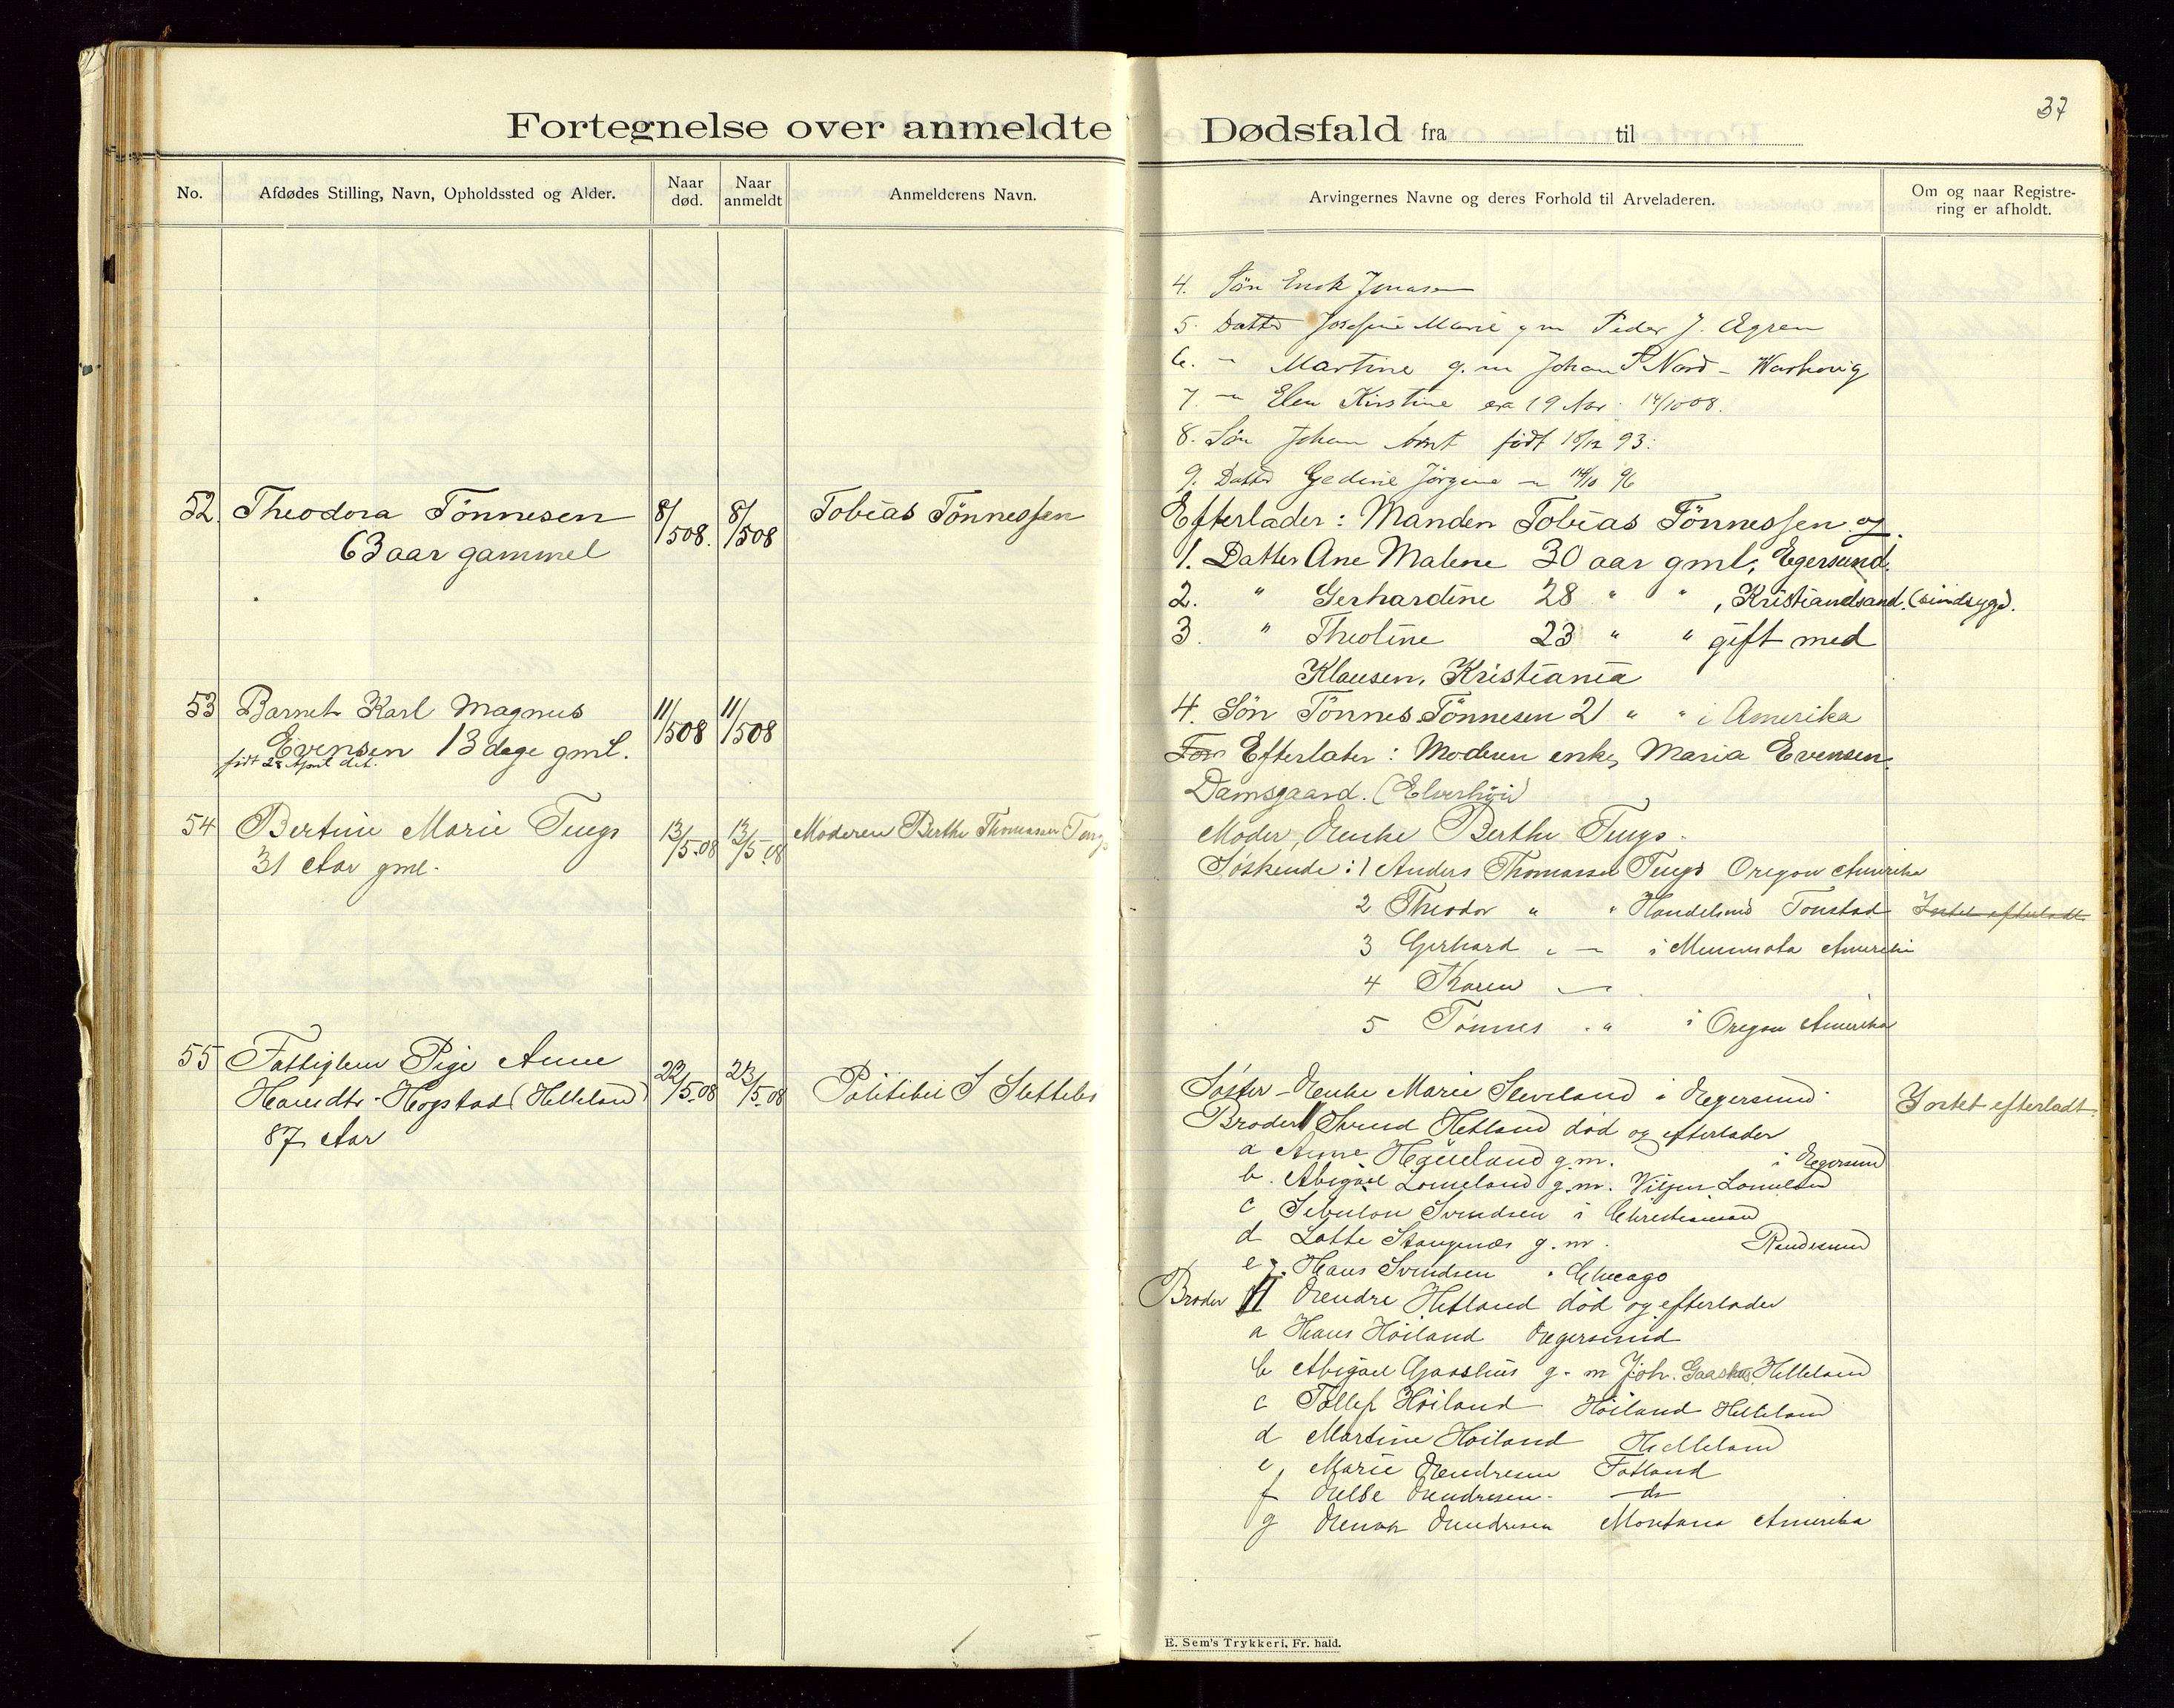 37
Fortegnelse over anmeldte Dødsfald fra til
No.
Afdødes Stilling, Navn, Opholdssted og Alder.
Naar død.
Naar anmeldt
Anmelderens Navn.
Arvingernes Navne og deres Forhold til Arveladeren.
Om og naar Registre-
ring er afholdt.
4. Søn Enok Jonasen
5. Datter Josefine Marie g m Peder J. Egren
6. " Martine g. m Johan P Nord -
7. " Elen Kirstine 19 Aar 14/10 08.
8. Søn Johan født 18/12 93.
9. Datter Gedine Jørgine " 14/10 96
52. Theodora Tönnesen 8/508. 8/508 Tobias Tönnessen
63 aar gammel
Efterlader: Manden Tobias Tönnessen og
1. Datter Ane Malene 30 aar gml, Egersund.
2. " Gerhardine 28 " " , Kristiandsand. (sindsyg).
3. " Theoline 23 " " gift med
Klausen, Kristiania
4. Søn Tönnes Tönnesen 21 " " i Amerika
53 Barnet Karl Magnus 11/508 11/508
Evensen 13 dage gml.
født 28 April dit.
For Efterlater: Moderen enke, Maria Evensen.
Damsgaard. (Elverhöi)
54 Bertine Marie Tengs 13/5.08 13/5.08 Moderen Berthe Thomassen Tengs
31 Aar gml.
Moder, Enke Berthe Tengs.
Søskende: 1 Anders Thomassen Tengs Oregon Amerika
2 Theodor " " Handelsmd Tonstad Intet efterladt
3 Gerhard " — i Minnesota Amerika
4 Karen —
5 Tönnes " " i Oregon Amerika
55 Fattiglem Pige Anne 22/5.08 23/5.08 Politibet S Slettebø
Hansdtr. Hegstad (Helleland)
87 Aar
Søster Enke Marie Sleveland i Egersund. Intet efterladt.
Broder I Svend Hetland død og efterlader
a Anne Høiland g.m. i Egersund
b. Abigael Lomeland g.m. Lomeland
c Sebulon Svendsen i Christiansand
d Lotte Stangenæs g.m. Randesund
e Hans Svendsen " Chicago
Broder II Endre Hetland død og efterlader
a Hans Höiland Egersund
b Abigael Gaashus g. m Joh. Gaashus Helleland
c Tollef Höiland Höiland Helleland
d Martine Höiland Helleland
e Marie Endresen Fotland
f Endresen. do
g Endresen Montana Amerika
E. Sem's Trykkeri, Fr. hald.